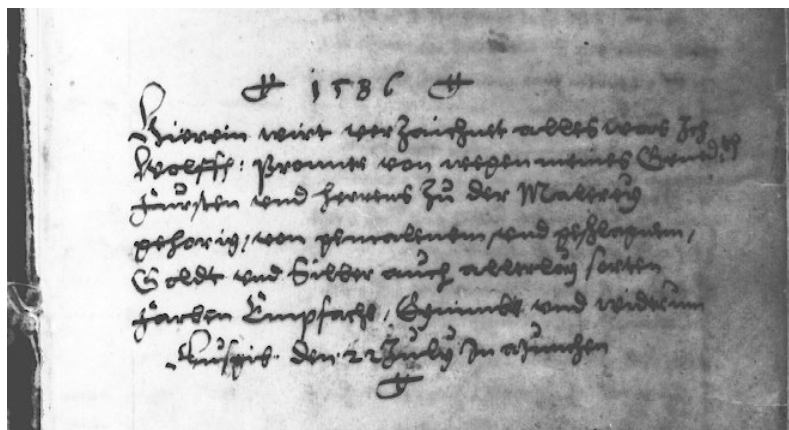 1586
Hierein wirt verzaichnet alles was Ich
Wolff: Pronner von wegen meines Gened:
Fürsten vnd herrens Zů der Malerey
gehorig, von gemalenem, vnd geschlagnem,
Goldt vnd Silber auch allerlay sorten
farben Empfache, Eynimbt vnd widerum
Ausgib. den 22 July In München